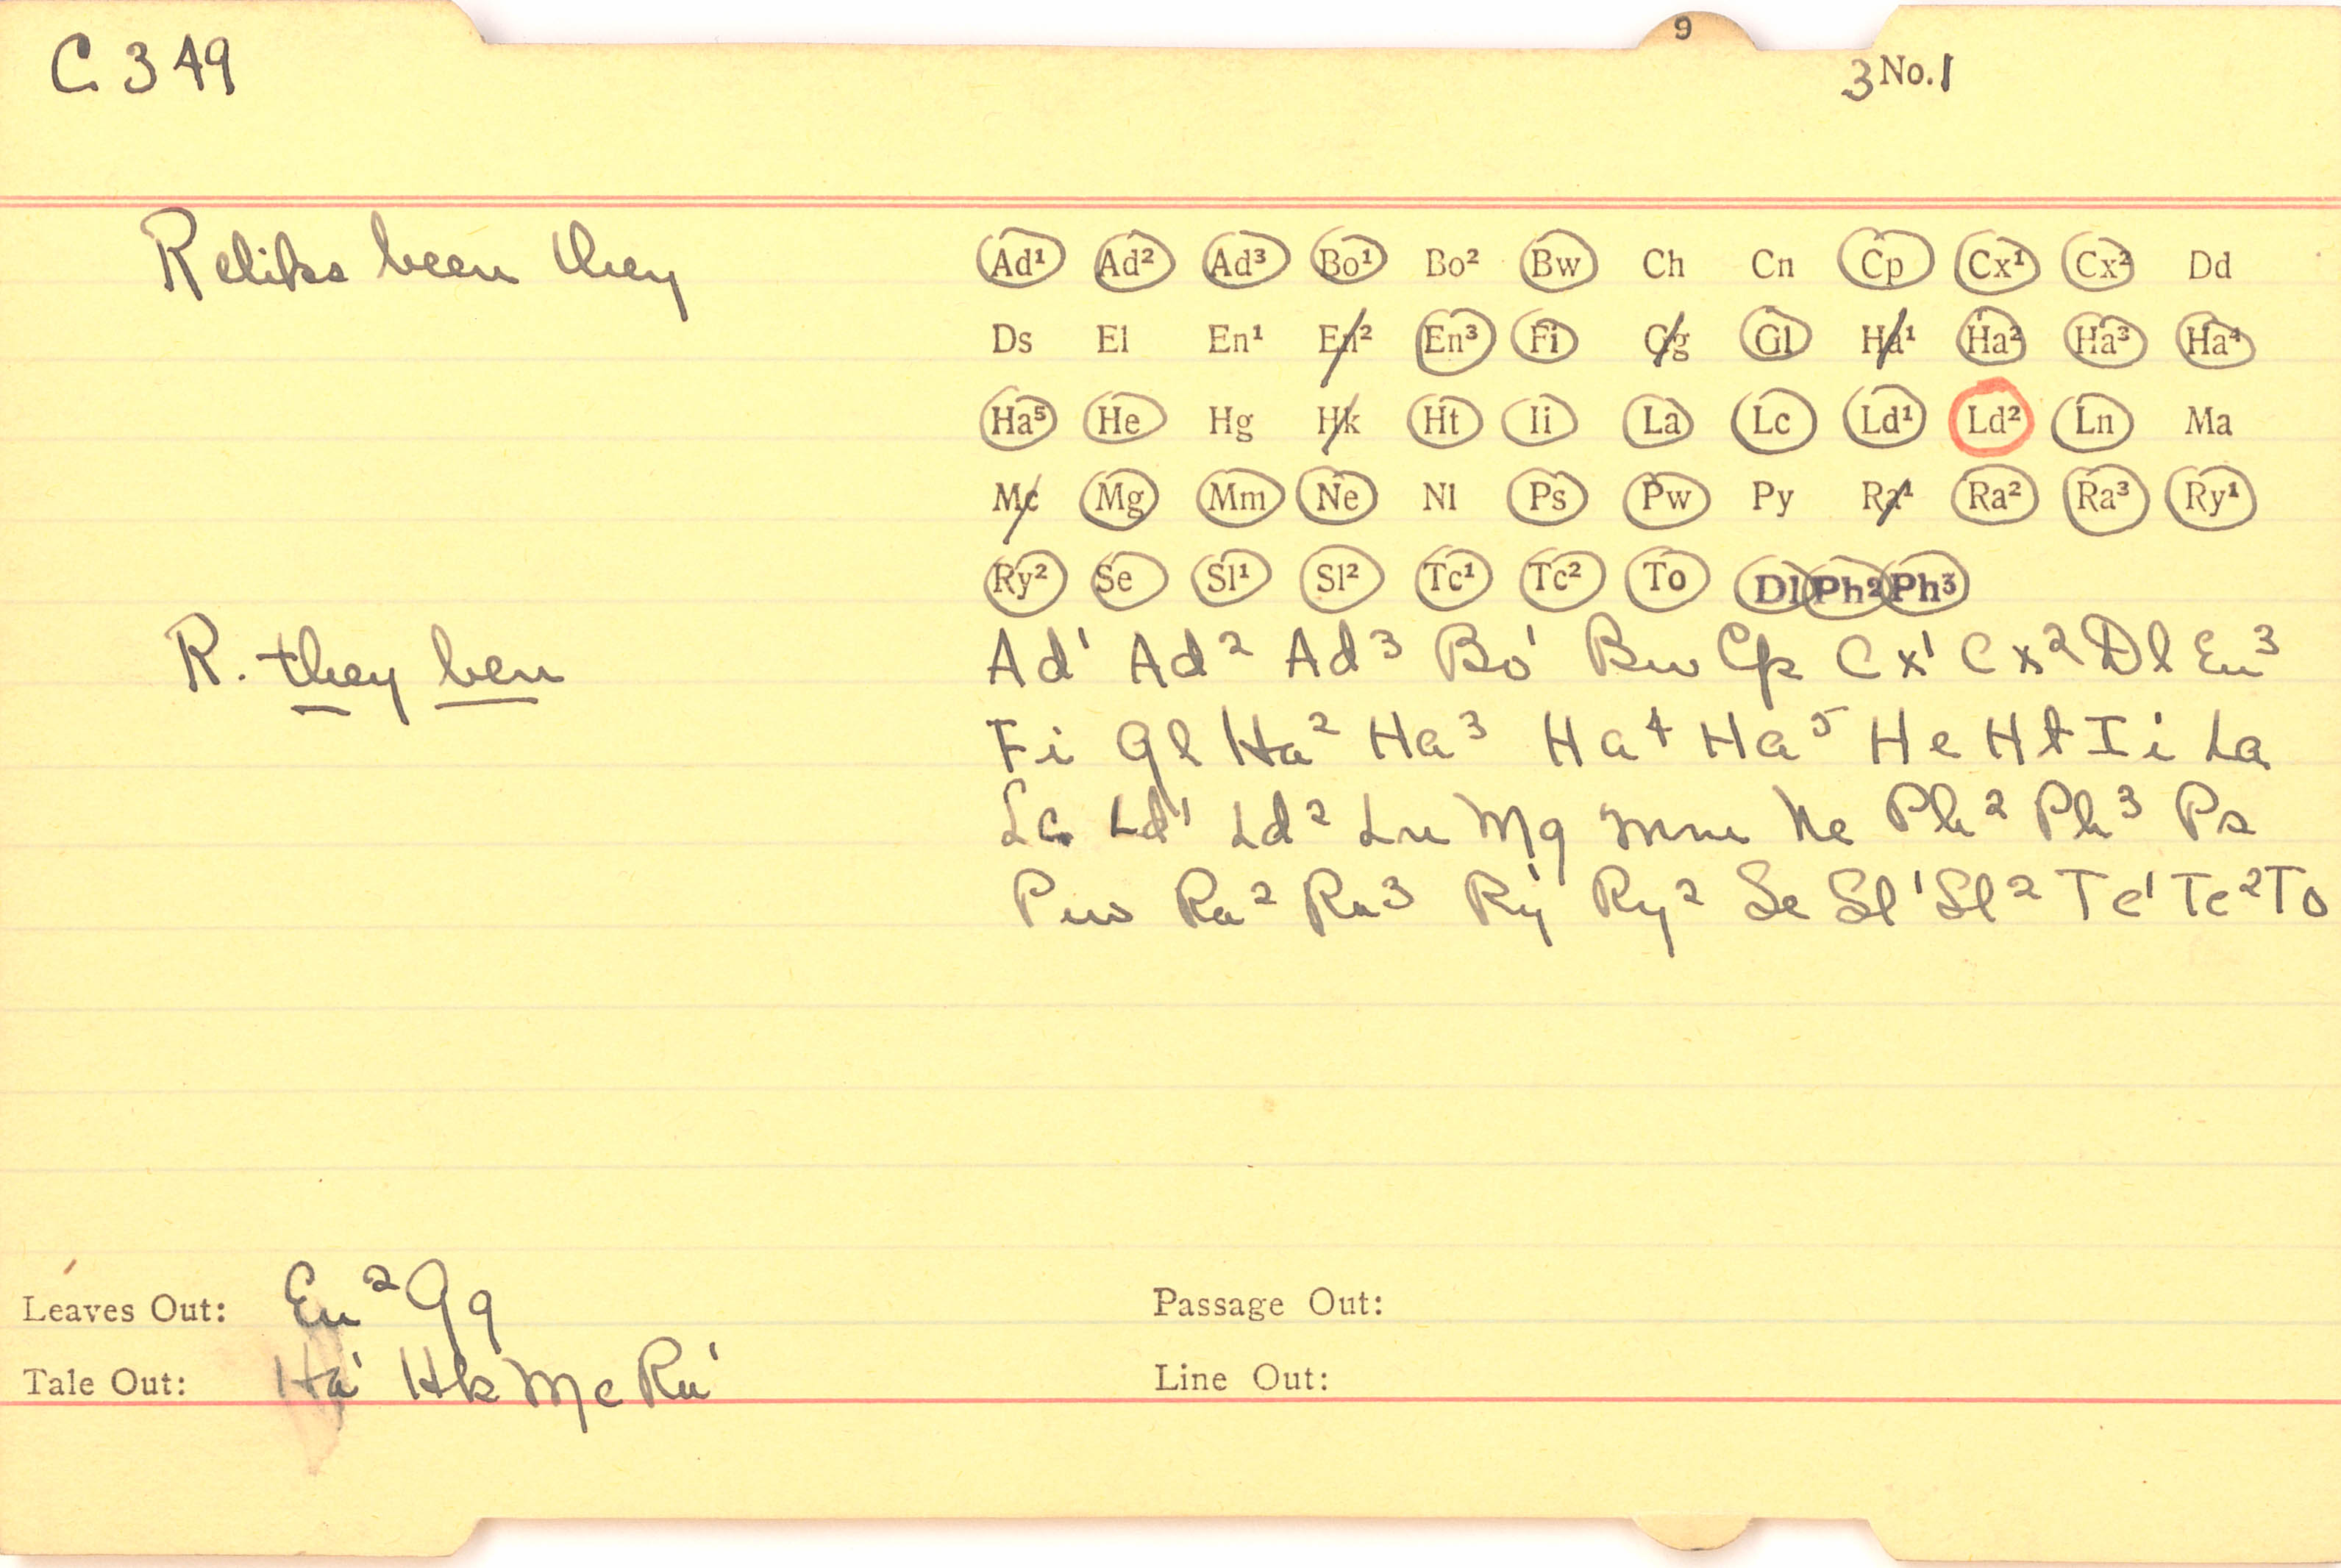 9
C 349
3 No. 1
Reliks been they
Ad¹ Ad² Ad³ Bo¹ Bo² Bw Ch Cn Cp Cx¹ Cx² Dd
Ds El En¹ En² En³ Fi Gg Gl Ha¹ Ha² Ha³ Ha⁴
Ha⁵ He Hg Hk Ht Ii La Lc Ld¹ Ld² Ln Ma
Mc Mg Mm Ne Nl Ps Pw Py Ra¹ Ra² Ra³ Ry¹
Ry² Se Sl¹ Sl² Tc¹ Tc² To Dl Ph² Ph³
R. they ben
Ad¹ Ad² Ad³ Bo¹ Bw Cp Cx¹ Cx² Dl En³
Fi Gl Ha² Ha³ Ha⁴ Ha⁵ He Ht Ii La
Lc Ld¹ Ld² Ln Mg Mm Ne Ph² Ph³ Ps
Pw Ra² Ra³ Ry¹ Ry² Se Sl¹ Sl² Tc¹ Tc² To
Leaves Out: En² Gg
Passage Out:
Tale Out: Ha¹ Hk Mc Ra¹
Line Out: